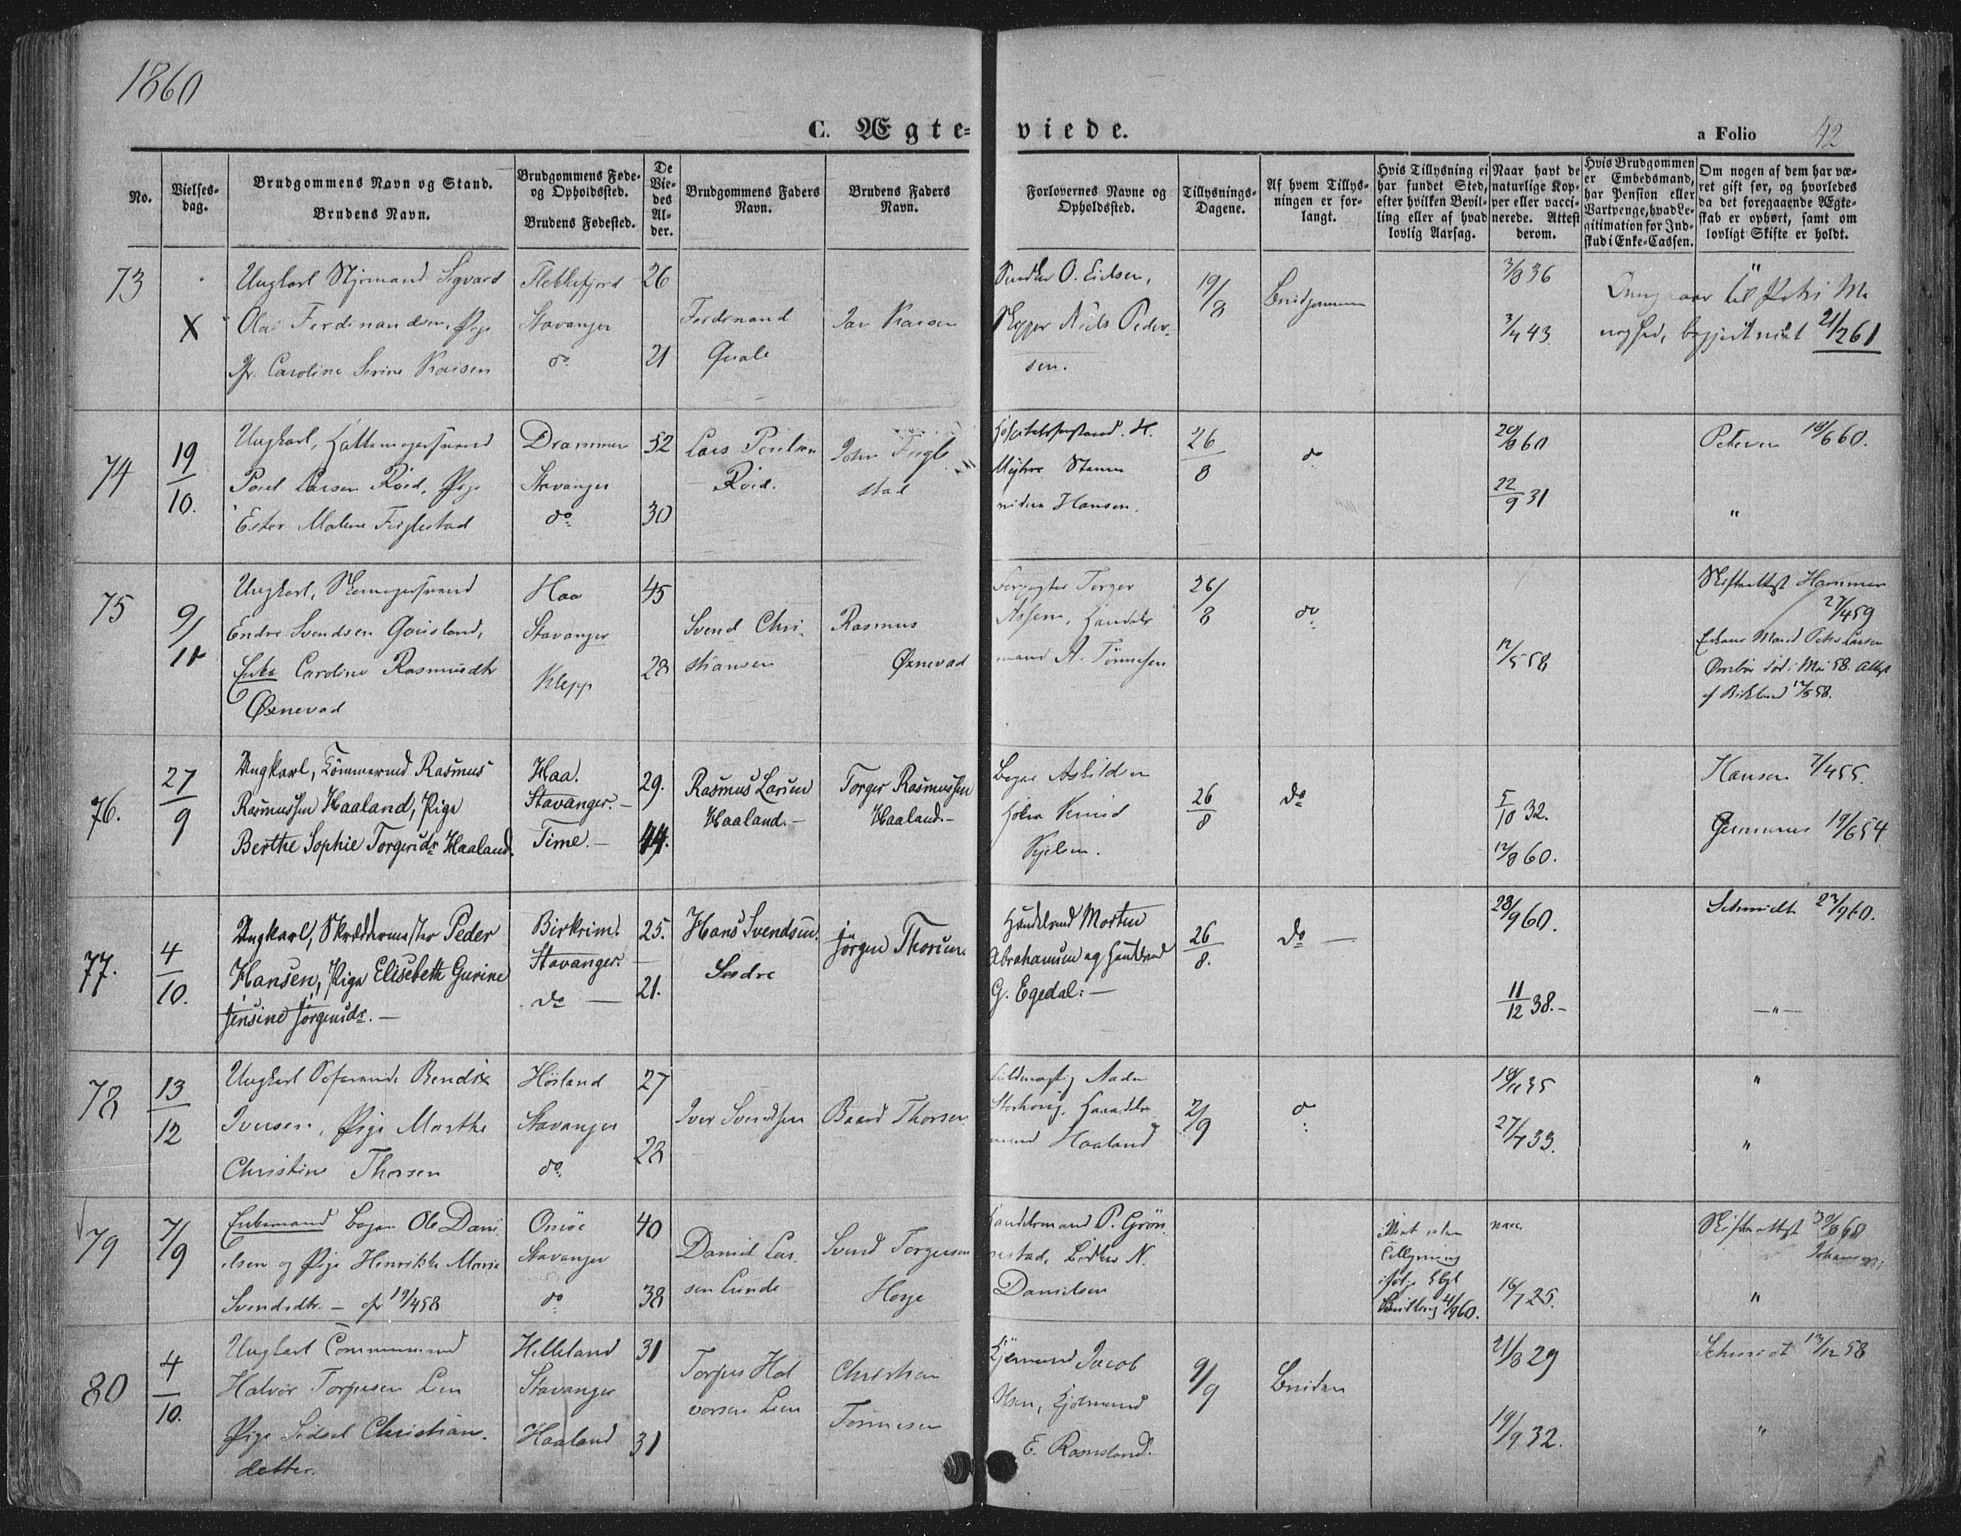 1860
C. Ægte-
viede.
a Folio 42
No.
Vielses-
dag.
Brudgommens Navn og Stand.
Brudens Navn.
Brudgommens Føde-
og Opholdssted.
Brudens Fødested.
De
Vie-
des
Al-
der.
Brudgommens Faders
Navn.
Brudens Faders
Navn.
Forlovernes Navne og
Opholdssted.
Tillysnings-
Dagene.
Af hvem Tillys-
ningen er for-
langt.
Hvis Tillysning ei
har fundet Sted,
efter hvilken Bevil-
ling eller af hvad
lovlig Aarsag.
Naar havt de
naturlige Kop-
per eller vacci-
nerede. Attest
derom.
Hvis Brudgommen
er Embedsmand,
har Pension eller
Vartpenge, hvad Le-
gitimation for Ind-
skud i Enke-Cassen.
Om nogen af dem har væ-
ret gift før, og hvorledes
da det foregaaende Ægte-
skab er ophørt, samt om
lovligt Skifte er holdt.
73
X
Ungkarl Styrmand Sigvard
Olai Ferdinandsen, Pige
Caroline Serine Kaisen
Flekkefjord
Stavanger
do
26
21
Ferdinand
Quale
Kaisen
O. Eielsen,
Niels Peder-
sen.
19/8
Brudgommen
3/8 36
3/4 43
til Petri Me
nighed, 21/2 61
74
19/10.
Ungkarl, Hattemagersvend
Poul Larsen Roid, Pige
Ester Malene Figlestad
Drammen
Stavanger
do
52
30
Lars Poulsen
Roid.
John Figle
stad
H.
Hansen.
26/8
do
60
22/9 31
"
Petersen 60.
75
9/11
Ungkarl, Skomagersvend
Endre Svendsen Gausland,
Enke Caroline Rasmusdtr
Øxnevad
Haa
Stavanger
Klepp
45
28
Svend Chri-
stiansen
Rasmus
Øxnevad
Torger
Handels
mand A. Tønnesen
26/8
do
12/5 58
Skifteattest Hammer
27/4 59
Enkens Mand Larsen
Mai 58. Attest
12/5 58.
76.
27/9
Ungkarl, Tømmermd Rasmus
Rasmussen Haaland, Pige
Berthe Sophie Torgersdr Haaland.
Haa.
Stavanger.—
Time.—
29.
44.
Rasmus Larsen
Haaland.—
Torger Rasmussen
Haaland.—
Askildsen
Knud
Kjelsen.
26/8
do
5/10 32.
12/8 60.
Hansen 7/4 55.
19/6 54
77.
4/10.
Ungkarl, Skræddermester Peder
Hansen, Pige Elisebeth Gurine
Jensine Jørgensdr.—
Birkrim.
Stavanger.—
do —
25.
21.
Hans Svendsen.
Jørgen Thorsen.
Handelsmd Morten
Abrahamsen og Handelsmd
G. Egedal.—
26/8.
do —
28/9 60.
11/12 38.—
Schmidt 27/9 60.
—"—
78
13/12
Ungkarl Bendix
Iversen, Pige Marthe
Christine Thorsen
Høiland
Stavanger
do.
27
28
Iver Svendsen
Baard Thorsen
Fuldmægtig Aaden
Storhoug, Handels
mand Haaland
2/9
do
35
27/7 33.
"
"
79
7/9
Enkemand Ole Dani
elsen og Pige Henrikke Marie
Svendsdtr.— 19/4 58
Stavanger
do
40
38
Daniel Lar-
sen Lunde
Svend Torgersen
Høye
Handelsmand P. Grøn
nestad, N.
Danielsen
uden
Tillysning
ifølge
Bevilling 4/9 60.
vacc.
16/7 25.
Skifteattest 60
"
80
4/10.
Ungkarl
Halvor Torjusen Lien
Pige Sidsel Christians-
datter.
Helleland
Stavanger
Haaland
31
31
Torjus Hal
vorsen Lien
Christian
Tønnesen
Jacob
Olsen,
E. Ramsland.
9/9
Bruden
21/8 29
19/9 32.
Schmidt 13/12 58
"